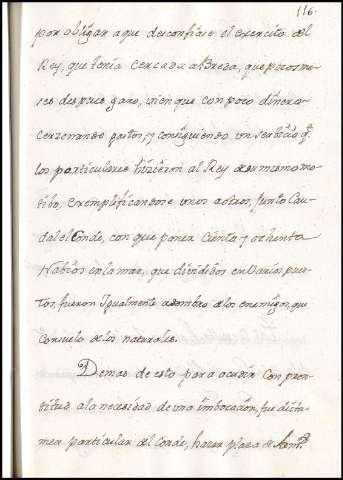 116.
por obligar a que desconfiase el exercito del
Rey, que tenia cercada a Breda, que pocos me-
ses despues gano, vien que con poco dinero
cercenando gastos, y consiguiendo un serbicio q.
los particulares hizieron al Rey de su mismo mo-
tibo, exemplificandose unos a otros, junto Cau-
dal el Conde, con que poner ciento y ochenta
Nabios en la mar, que divididos en varios puer-
tos, fueron igualmente asombro de los enemigos, que
consuelo de los naturales.
Demas de esto para acudir con pron-
titud a la necesidad de una imbocacion, fue dicta-
men particular del Conde, hacer plaza de